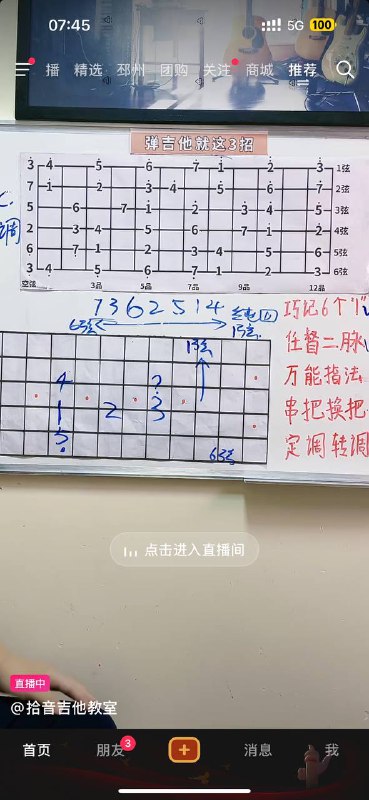 07:45 5G 100
播 精选 邳州 团购 关注 商城 推荐
弹吉他就这3招
3 4 5 6 7 1 2 3 1弦
7 1 2 3 4 5 6 7 2弦
5 6 7 1 2 3 4 5 3弦
2 3 4 5 6 7 1 2 4弦
6 7 1 2 3 4 5 6 5弦
3 4 5 6 7 1 2 3 6弦
空弦 3品 5品 7品 9品 12品
C.
调
7362514
6弦 1弦
1弦
4 7
1 2 3
5
6弦
巧记6个"1"
任督二脉
万能指法
串把换把
定调转调
点击进入直播间
直播中
@拾音吉他教室
首页 朋友 3 消息 我